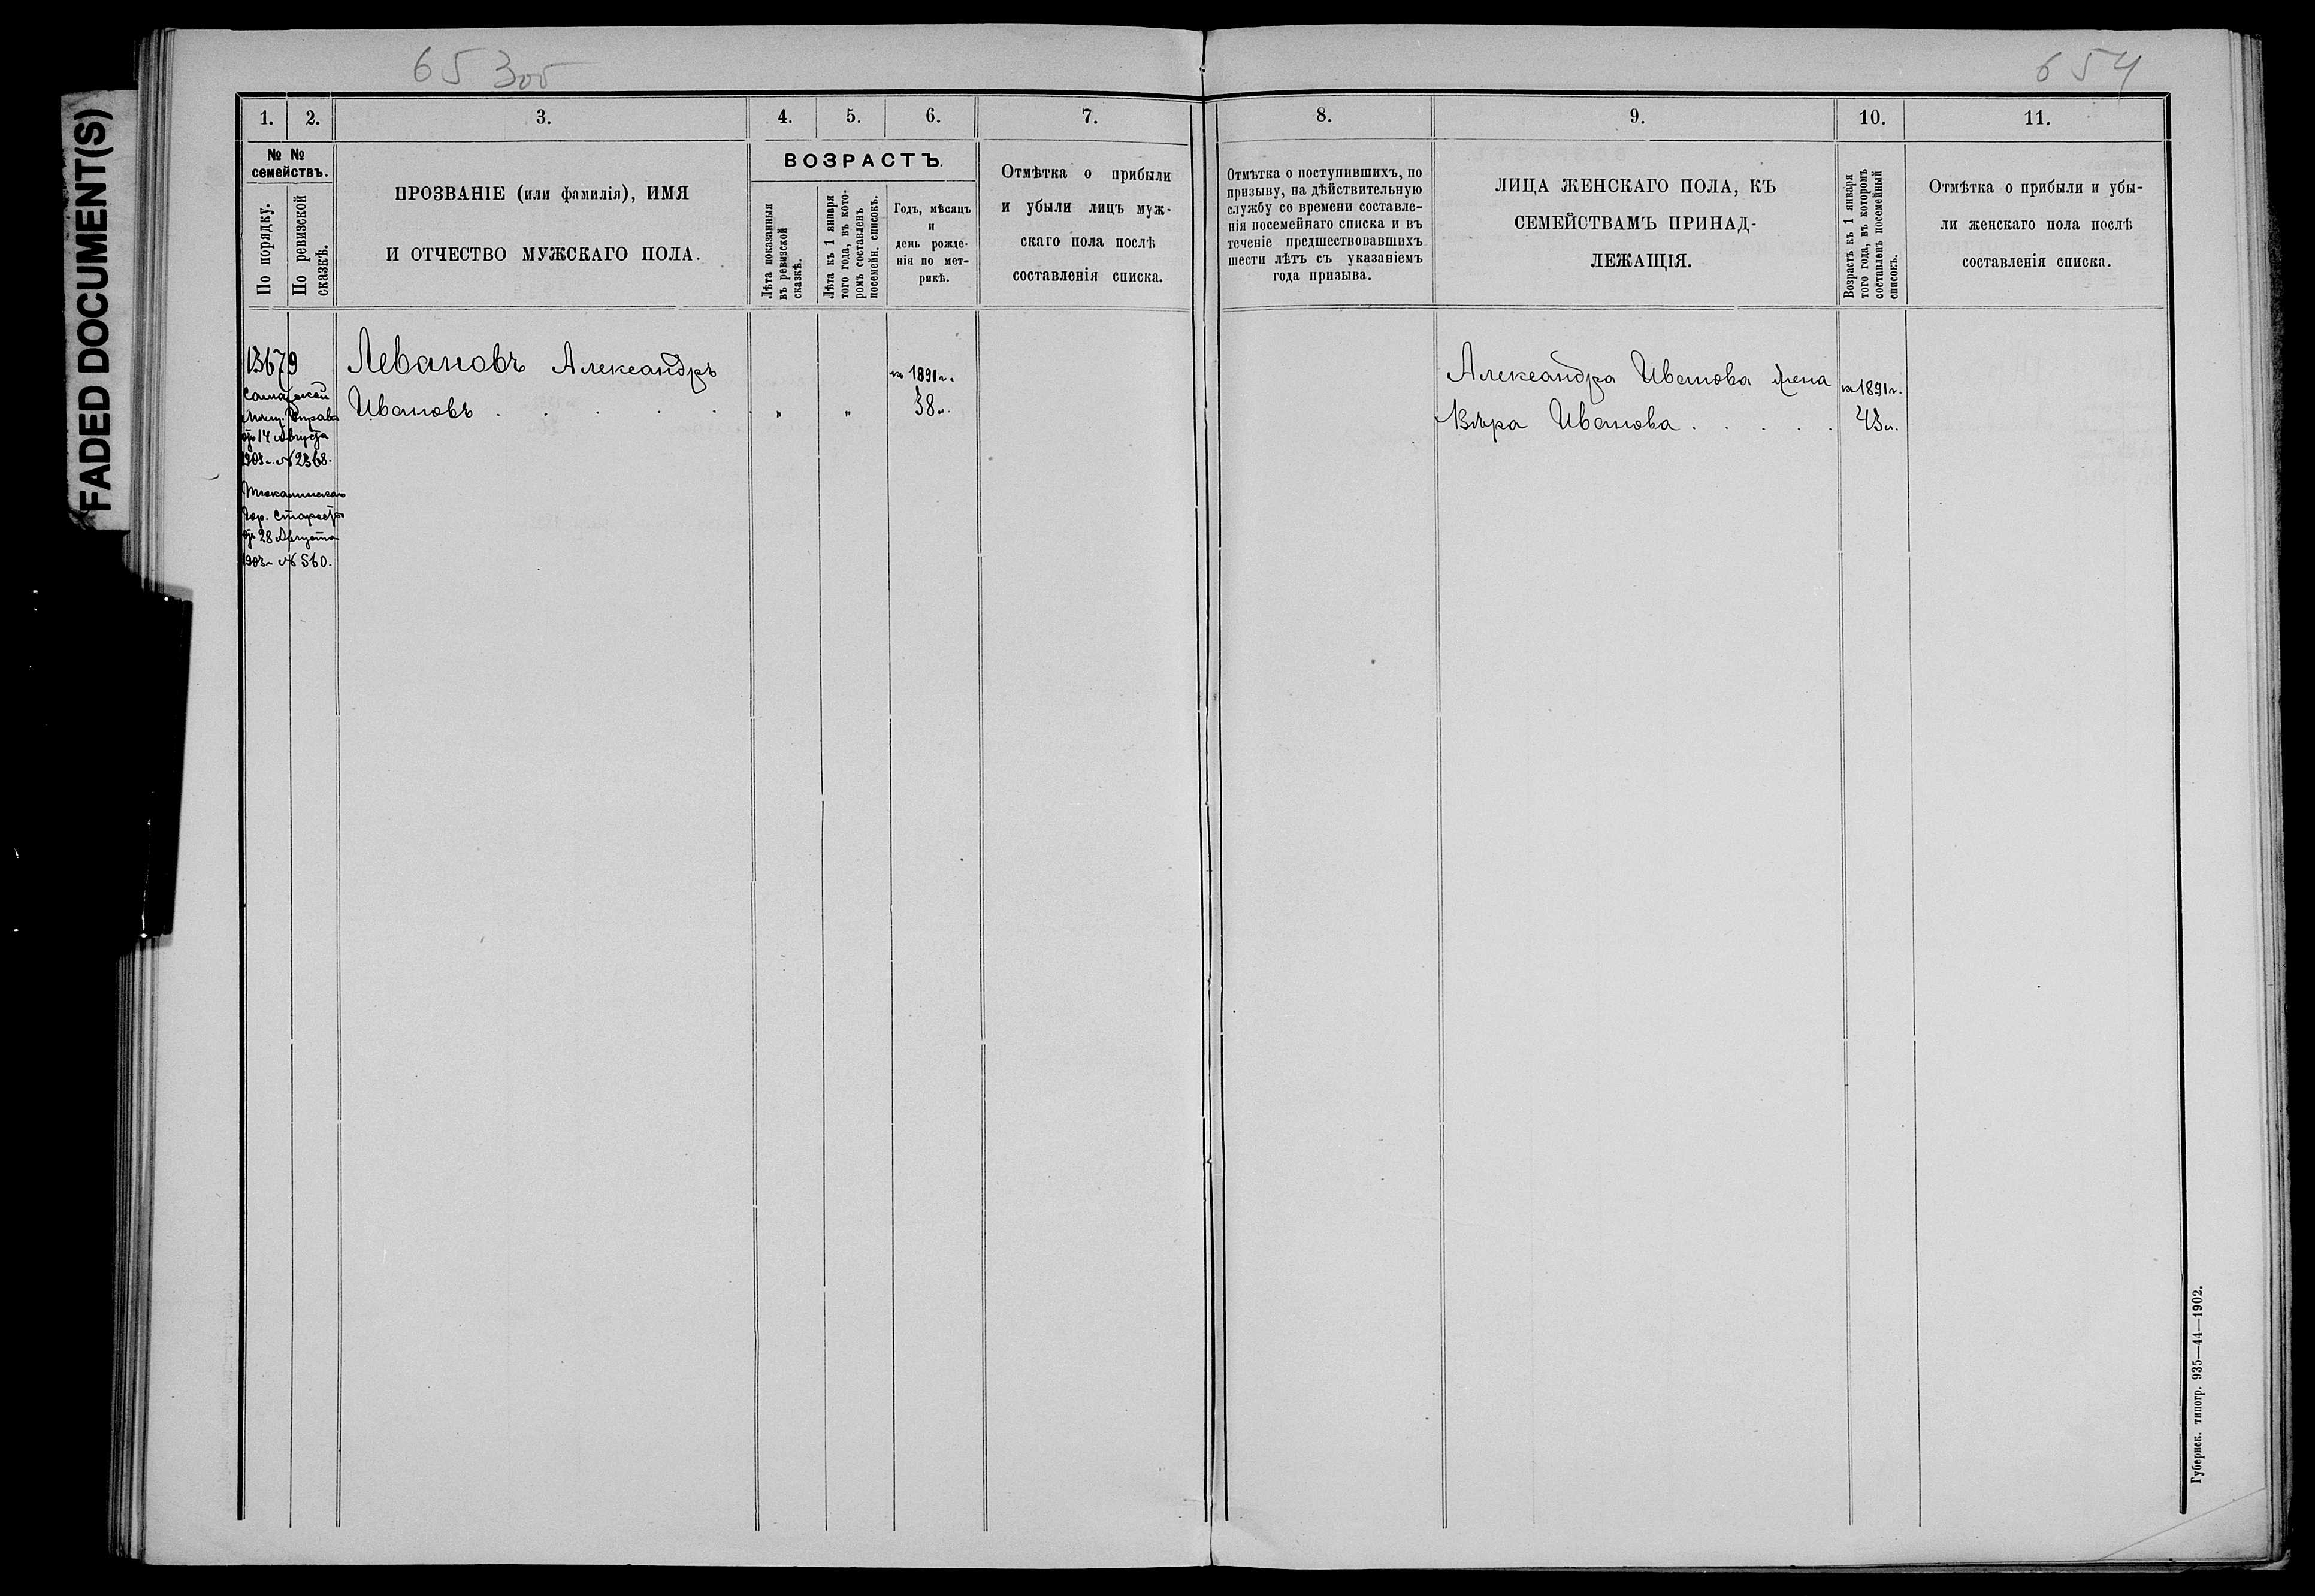 FADED DOCUMENT(S)
653об
654
1. 2. 3. 4. 5. 6. 7. 8. 9. 10. 11.
№ №
семействъ.
По порядку.
По ревизской
сказкѣ.
ПРОЗВАНІЕ (или фамилія), ИМЯ
И ОТЧЕСТВО МУЖСКАГО ПОЛА.
ВОЗРАСТЪ.
Лѣта показанныя
въ ревизской
сказкѣ.
Лѣта къ 1 января
того года, въ кото-
ромъ составленъ
посемейн. списокъ.
Годъ, мѣсяцъ
и
день рожде-
нія по мет-
рикѣ.
Отмѣтка о прибыли
и убыли лицъ муж-
скаго пола послѣ
составленія списка.
Отмѣтка о поступившихъ, по
призыву, на дѣйствительную
службу со времени составле-
нія посемейнаго списка и въ
теченіе предшествовавшихъ
шести лѣтъ съ указаніемъ
года призыва.
ЛИЦА ЖЕНСКАГО ПОЛА, КЪ
СЕМЕЙСТВАМЪ ПРИНАД-
ЛЕЖАЩІЯ.
Возрастъ къ 1 января
того года, въ которомъ
составленъ посемейный
списокъ.
Отмѣтка о прибыли и убы-
ли женскаго пола послѣ
составленія списка.
13679
Самарской
Мѣщ. Управы
отъ 14 Августа
1903 г. № 2368.
Тюкалинскаго
Гор. Старосты
отъ 28 Августа
1903 г. № 560.
Левановъ Александръ
Ивановъ . . . . . " "
къ 1891 г.
38 л.
Александра Иванова жена
Вѣра Иванова . . . . .
къ 1891 г.
43 л.
Губернск. типогр. 935—44—1902.